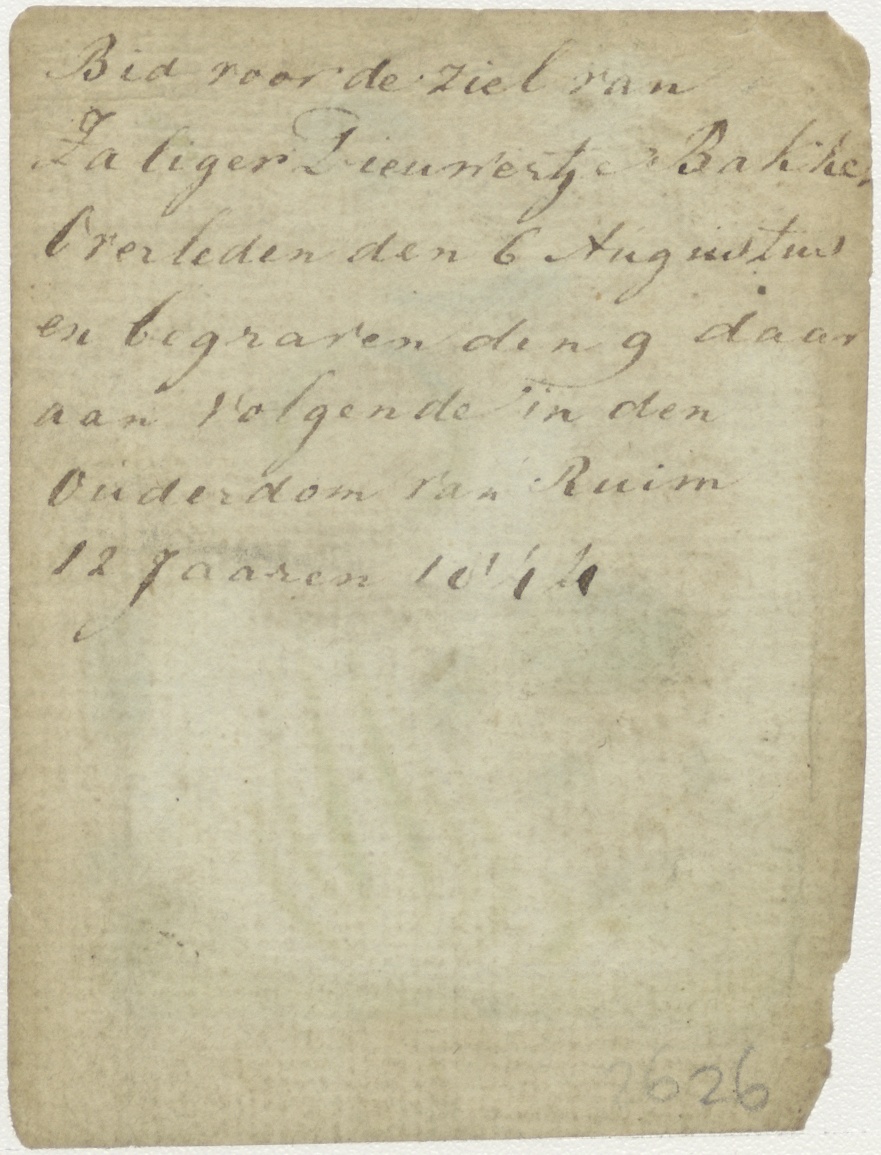 Bid voor de ziel van
Zaliger Dieuwertje Bakker
Overleden den 6 Augustus
en begraven den 9 daar
aan volgende in den
Ouderdom van Ruim
12 Jaaren 1844
626